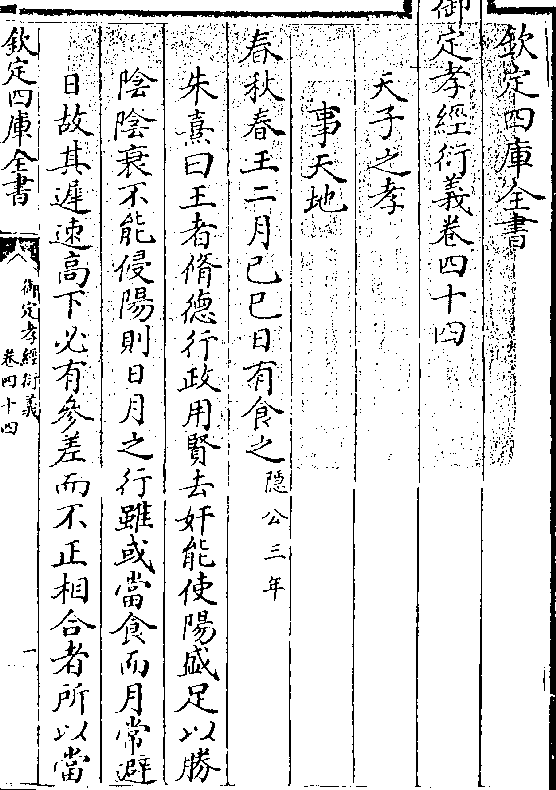 欽定四庫全書
御定孝經衍義卷四十四
天子之孝
事天地
春秋春王二月己巳日有食之隱公三年
朱熹曰王者脩德行政用賢去奸能使陽盛足以勝
陰陰衰不能侵陽則日月之行雖或當食而月常避
日故其遲速高下必有參差而不正相合者所以當
欽定四庫全書
御定孝經衍義
卷四十四
一